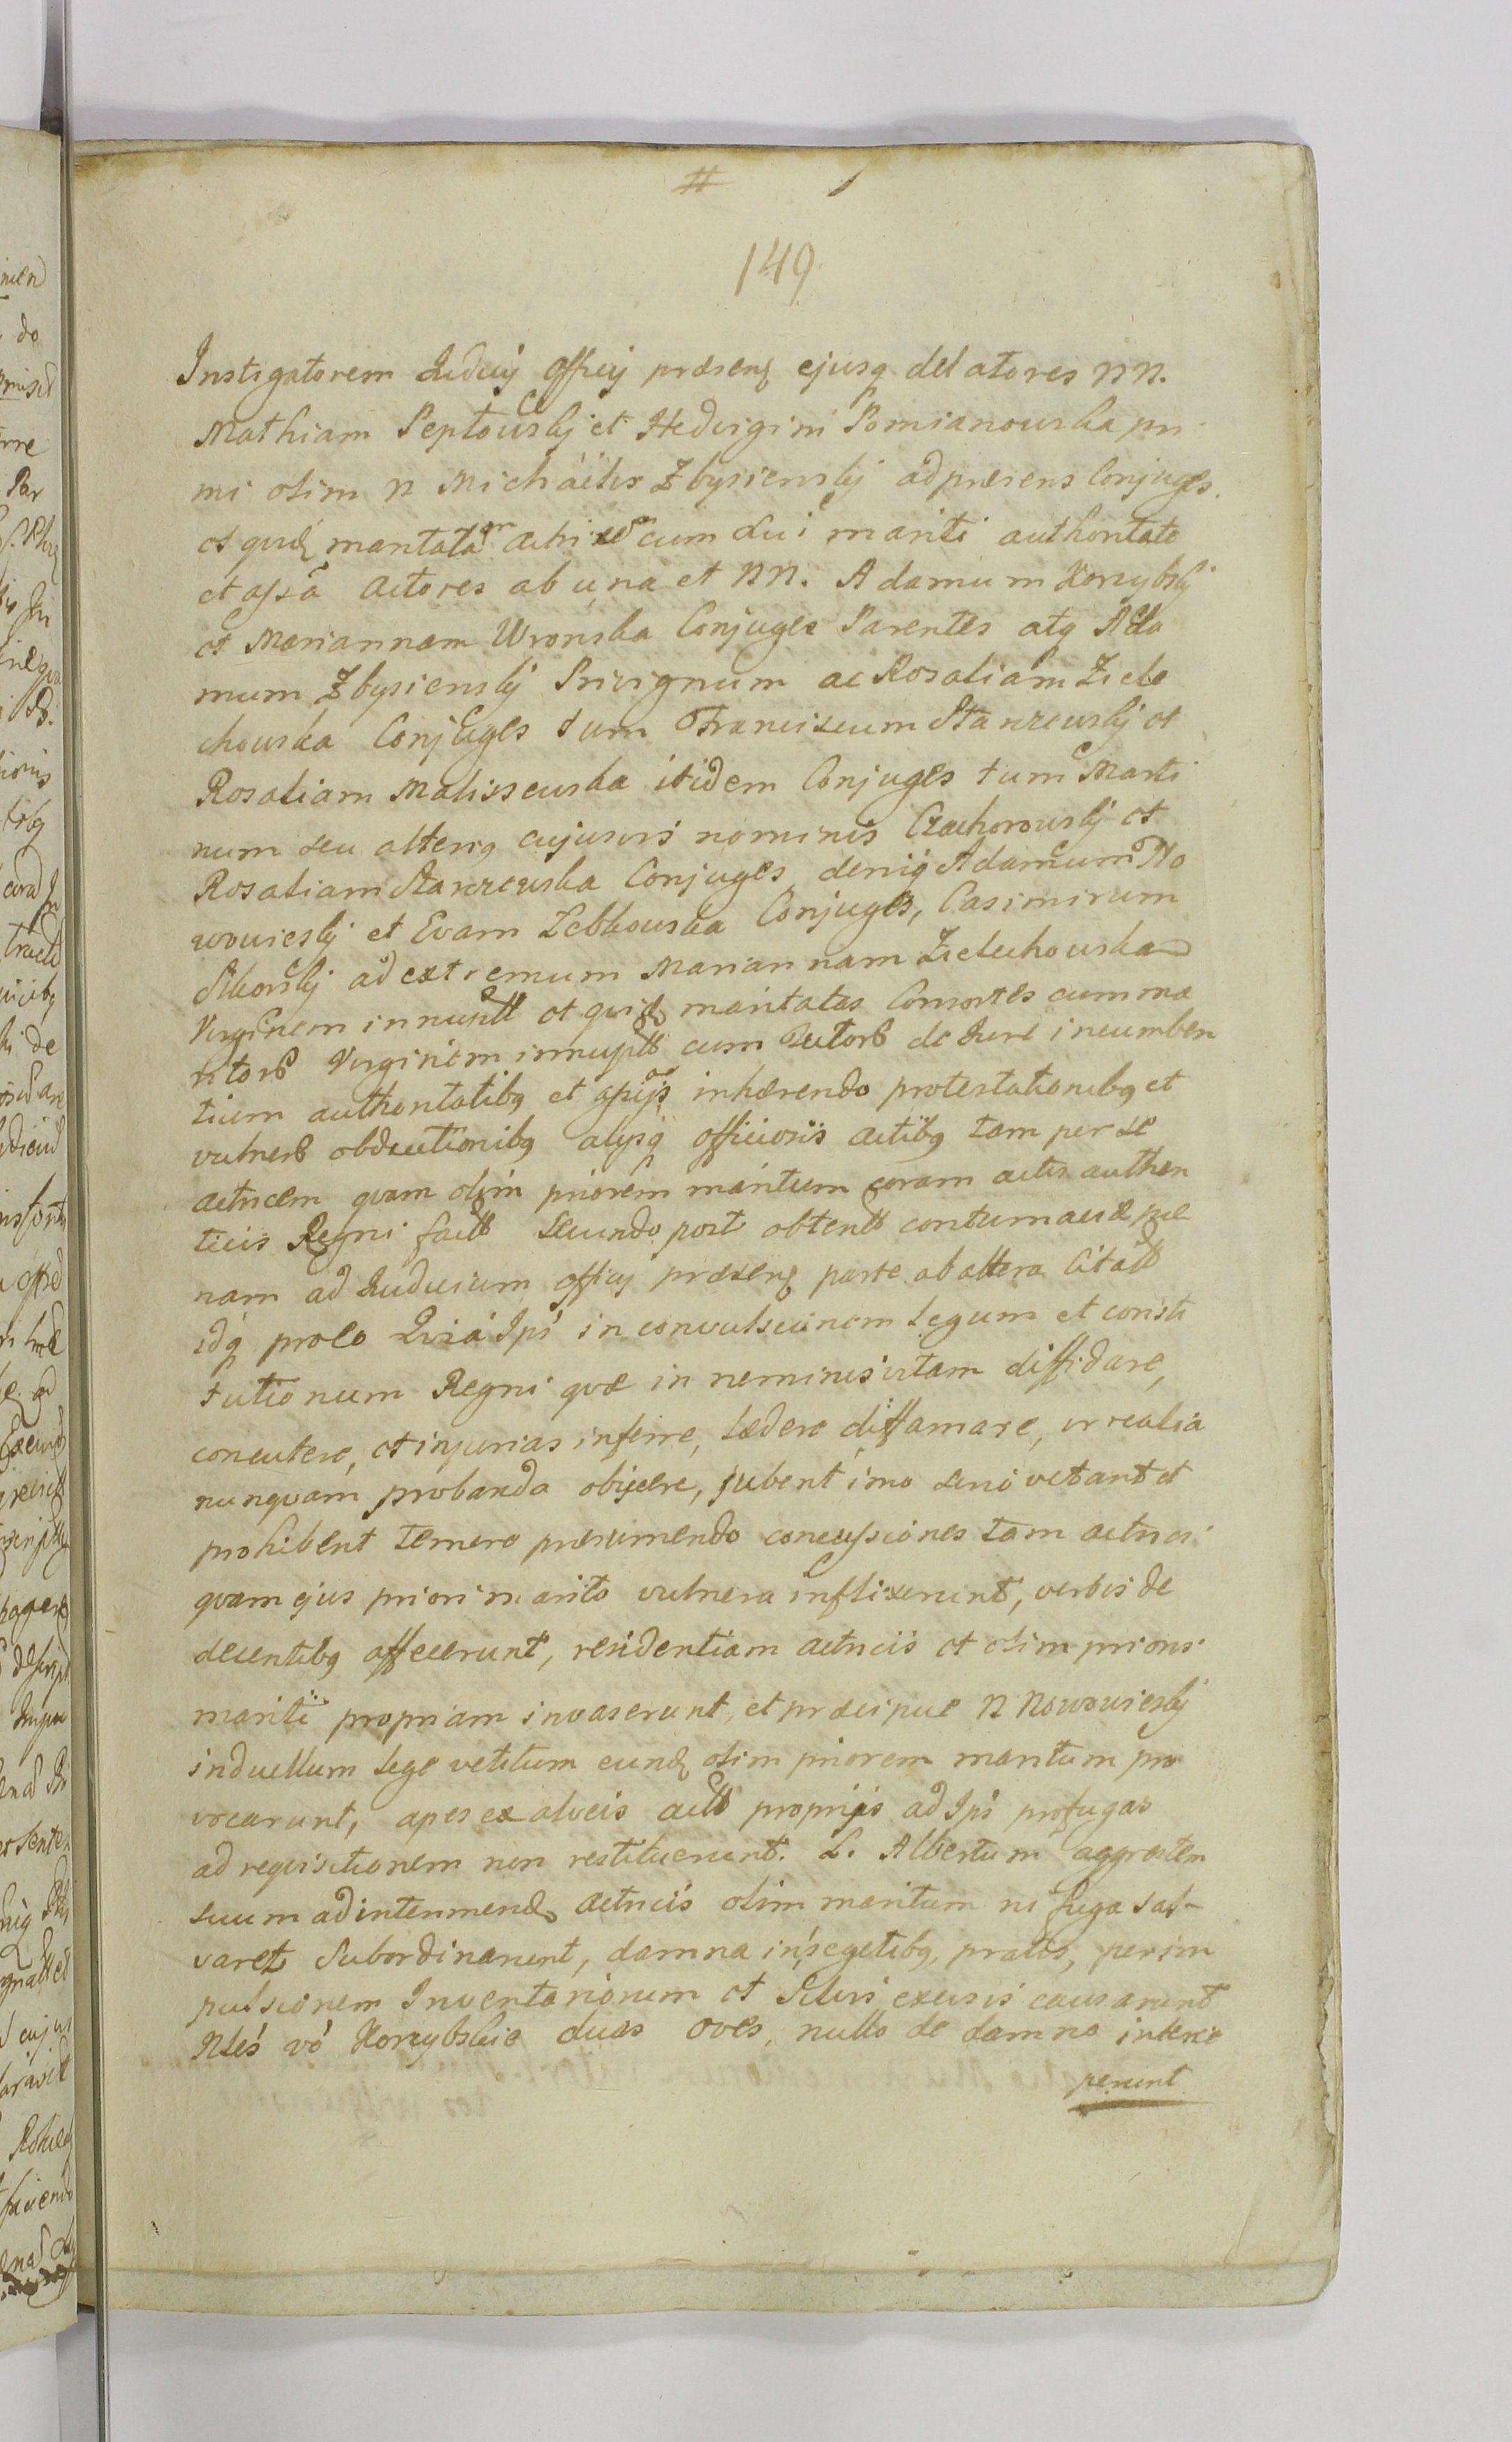 149
Instigatorem Judicij Officij præsenq ejusq delatores NN.
Mathiam Peptowskj et Hedvigim Pomianowska pri
mi olim N Michaelis Zbysienskj ad præsens Conjuges
et quid maritatã cum sui mariti authoritate
et assã Actores ab una et NN. Adamum Korzybskj
et Mariannam Wronska Conjuges Parentes atq Ada
mum Zbysienskj Privignum ac Rosaliam Ziele
chowska Conjuges tum Franciscum Stanzewskj et
Rosaliam Malissewska itidem Conjuges tum Marti
num seu alterig cujusvis nominis Czachorowskj et
Rosaliam Stanzewska Conjuges deniq Adamum No
wowieskj et Evam Lebkowska Conjuges, Casimirum
Sikorskj ad extremum Mariannam Zieluchowska
Virginem innuptt et quid maritatas Consortes cum ma
ritorb Virginem innuptt cum Tutorb de Jure incumben
tium authoritatibq et assijs inhærendo protestationibq et
vulnerb obductionibq alijsq officiosis actibq tam per se
actricem qvam olim priorem maritum coram actis authen
ticis Regni factb secundo post obtentb contumaciæ pœ
nam ad Judicium officij præsenq parte ab altera Citatb
idq pro eo Quia Ipsi in convulsionem Legum et consti
tutionum Regni qvæ in neminis vitam diffidare,
concutere, et injurias inferre, lædere diffamare, irrealia
nunqvam probanda objicere, jubent imo seriò vetant et
prohibent temere præsumendo concussiones tam actrici
qvam ejus priori marito vulnera inflixerunt, verbis de
decentibq affecerunt, residentiam actricis et olim prioris
mariti propriam invaserunt, et præcipue N Nowowieskj
in duellum lege vetitum eundq olim priorem maritum pro
vocarunt, apes ex alveis actb proprijs ad Ipsi profugas
ad reqvisitionem non restituerunt. L. Albertum aggrestem
suum ad interimendq actricis olim maritum ni fuga sal-
varetq subordinarunt, damna in segetibq, pratis, per im
pulsionem Inventariorum et Silvis excisis causarunt
Nles vo Korzybskie duas oves, nullo de damno interce
perunt